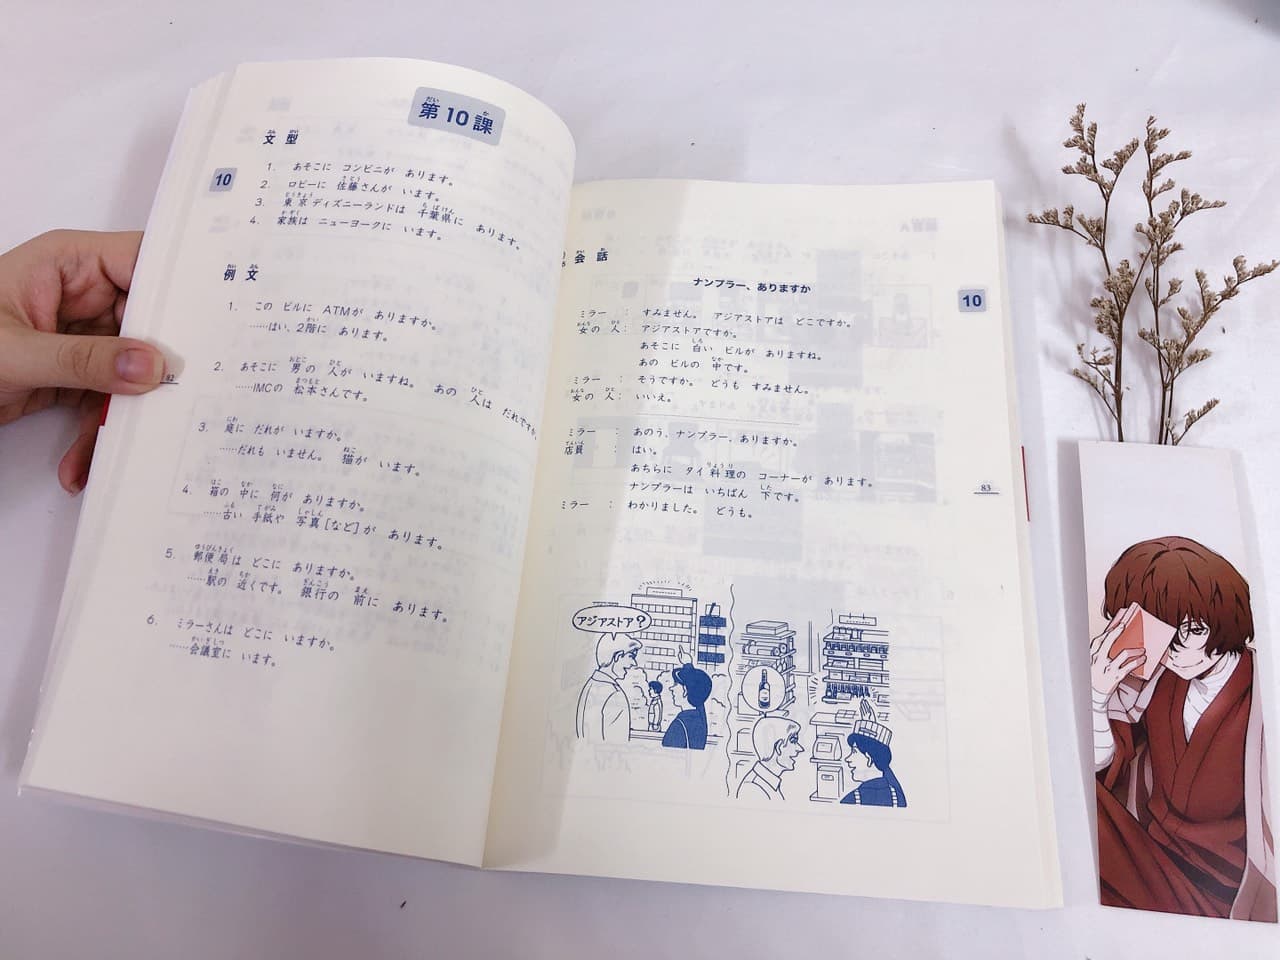 第10課
文型
10
1. あそこに コンビニが あります。
2. ロビーに 佐藤さんが います。
3. 東京ディズニーランドは 千葉県に あります。
4. 家族は ニューヨークに います。
例文
1. この ビルに ATMが ありますか。
……はい、2階に あります。
2. あそこに 男の 人が いますね。 あの 人は だれですか。
……IMCの 松本さんです。
3. 庭に だれが いますか。
……だれも いません。 猫が います。
4. 箱の 中に 何が ありますか。
……古い 手紙や 写真[など]が あります。
5. 郵便局は どこに ありますか。
……駅の 近くです。 銀行の 前に あります。
6. ミラーさんは どこに いますか。
……会議室に います。
82
会話
ナンプラー、ありますか
10
ミラー : すみません。 アジアストアは どこですか。
女の 人: アジアストアですか。
あそこに 白い ビルが ありますね。
あの ビルの 中です。
ミラー : そうですか。 どうも すみません。
女の 人: いいえ。
ミラー : あのう、ナンプラー、ありますか。
店員 : はい。
あちらに タイ料理の コーナーが あります。
ナンプラーは いちばん 下です。
ミラー : わかりました。 どうも。
83
アジアストア?